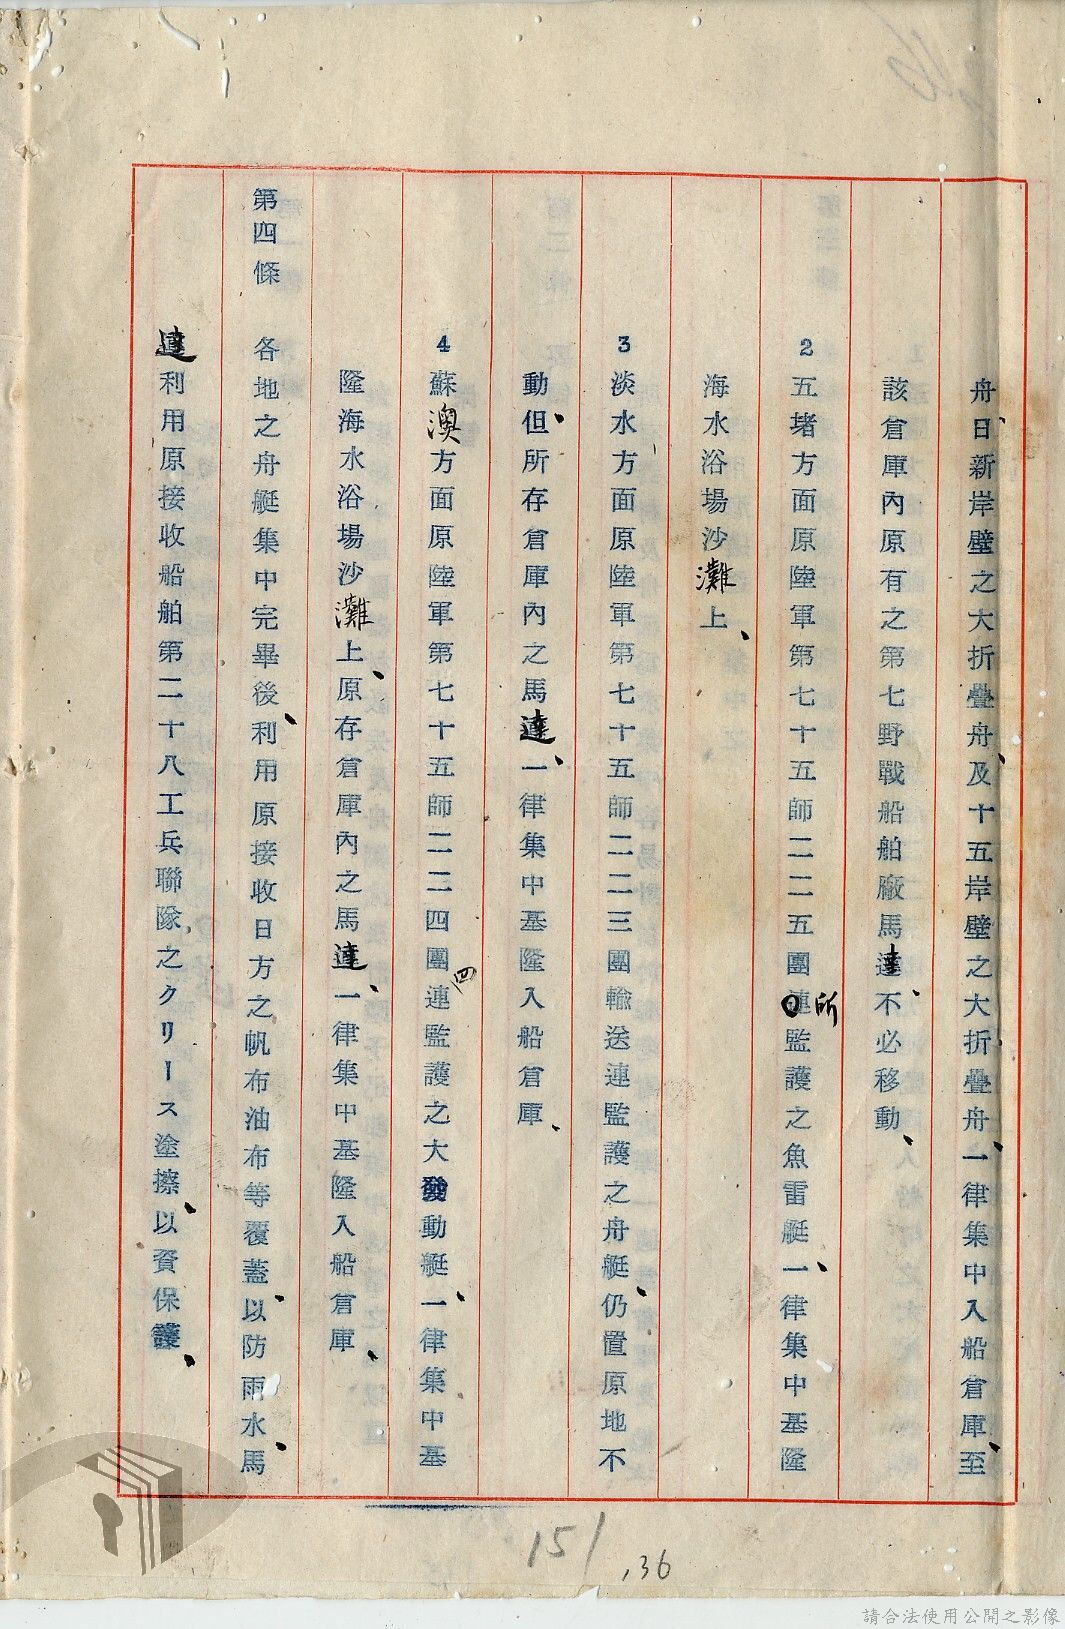 舟、日新岸壁之大折疊舟、及十五岸壁之大折疊舟、一律集中入船倉庫、至
該倉庫內原有之第七野戰船舶廠馬達、不必移動、
2 五堵方面原陸軍第七十五師二二五團所監護之魚雷艇、一律集中基隆
海水浴場沙灘上、
3 淡水方面原陸軍第七十五師二二三團輸送連監護之舟艇、仍置原地不
動、但所存倉庫內之馬達、一律集中基隆入船倉庫、
4 蘇澳方面原陸軍第七十五師二二四團四連監護之大發動艇、一律集中基
隆海水浴場沙灘上、原存倉庫內之馬達、一律集中基隆入船倉庫、
第四條 各地之舟艇集中完畢後、利用原接收日方之帆布油布等覆蓋、以防雨水、馬
達利用原接收船舶第二十八工兵聯隊之クリース塗擦、以資保護、
151
136
請合法使用公開之影像